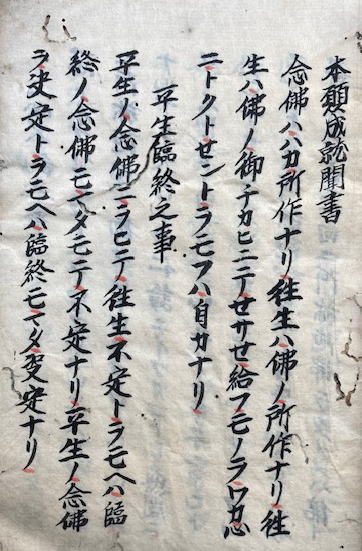 本願成就聞書
念佛ハハカ所作ナリ往生ハ佛ノ所作ナリ往
生ハ佛ノ御チカヒニテせサせ給フモノヲワカ心
ニトクトせントヲモフハ自力ナリ
平生臨終之事
平生ノ念佛ニヲヒテ往生不定トヲモヘハ臨
終ノ念佛モマタモテ不定ナリ平生ノ念佛
ヲ決定トヲモヘハ臨終モマタ決定ナリ